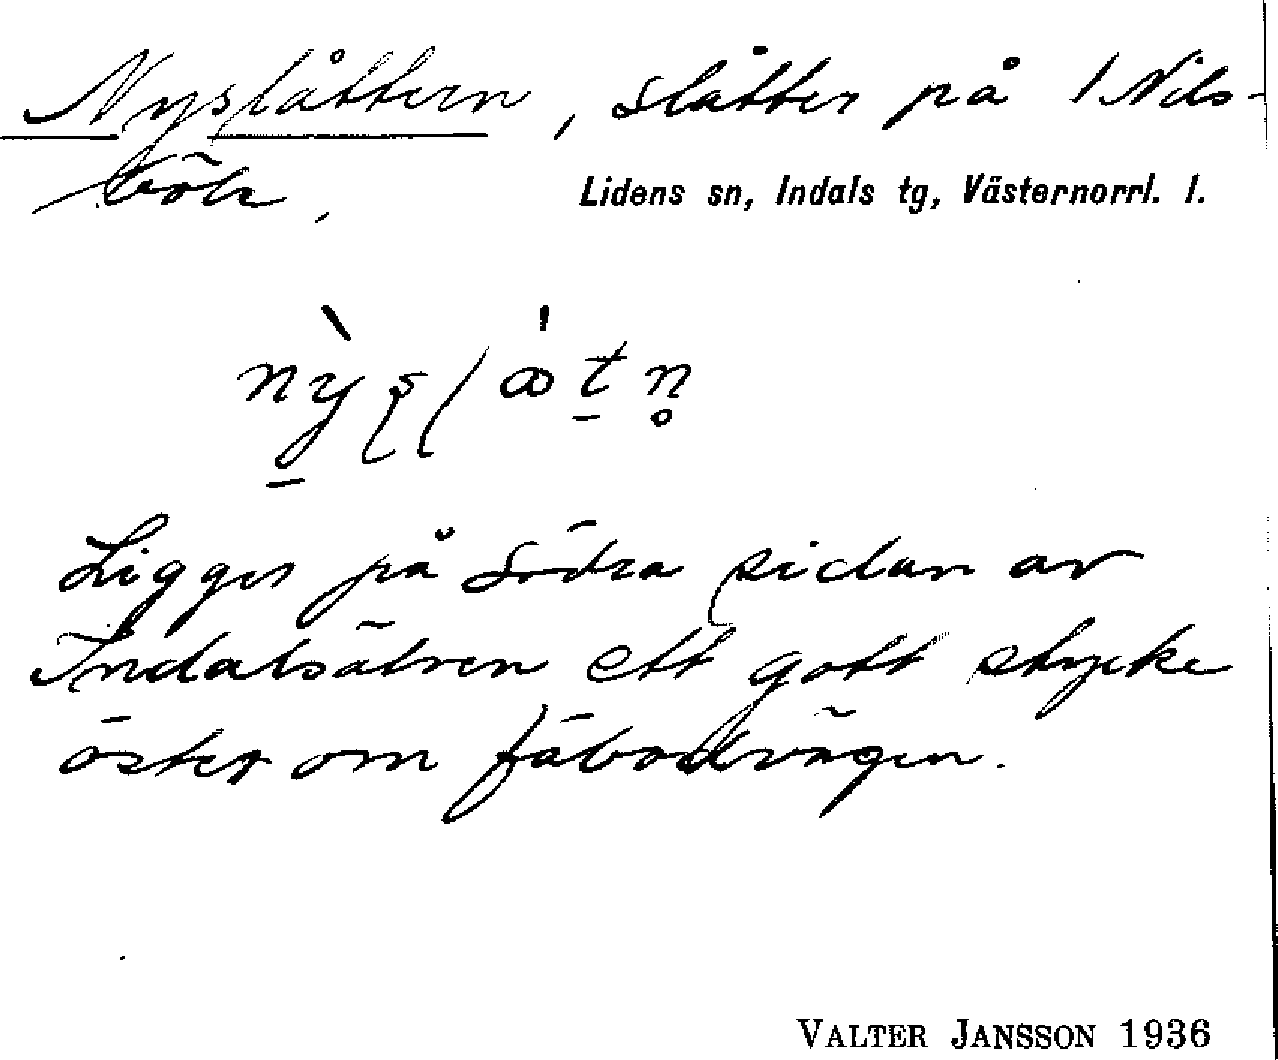 Nyslåttern, slåtter på 1 Nils-
böle,
Lidens sn, Indals tg, Västernorrl. l.
Ligger på södra sidan av
Indalsälven ett gott stycke
öster om fäbodvägen.
VALTER JANSSON 1936